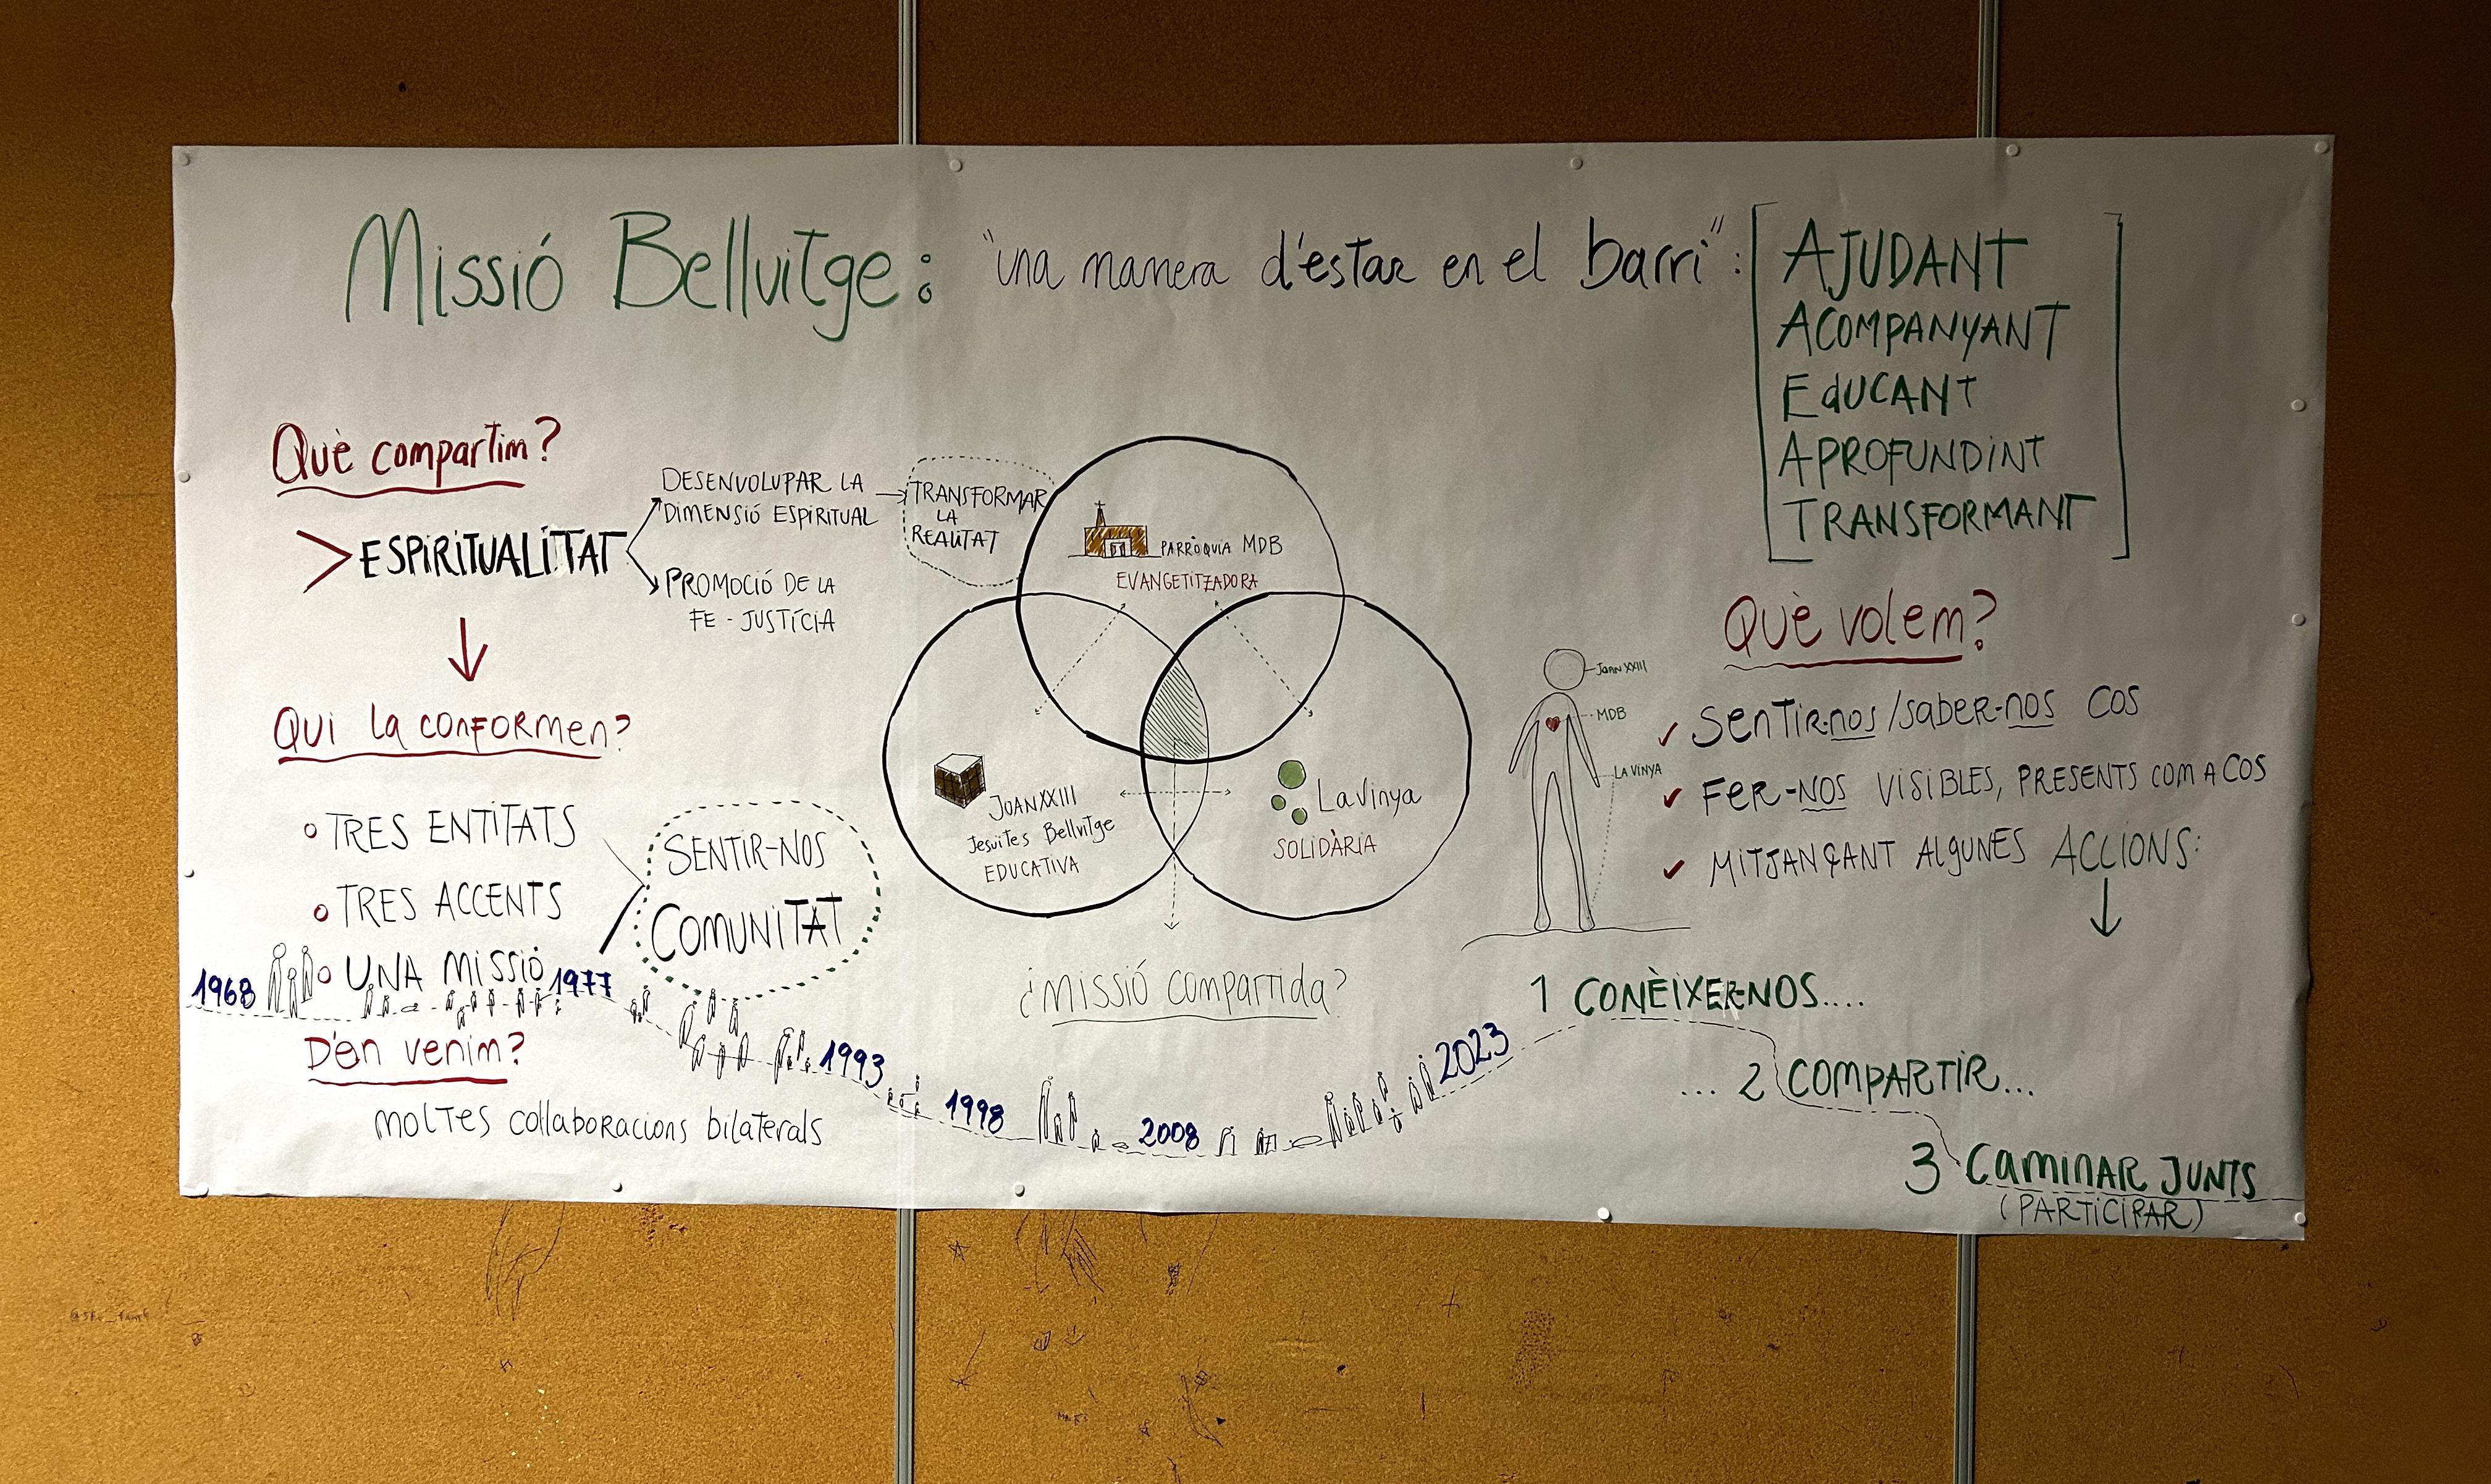 Missió Bellvitge: "una manera d'estar en el barri":
AJUDANT
ACOMPANYANT
EdUCANT
APROFUNDINT
TRANSFORMANT
Què compartim?
> ESPIRITUALITAT
DESENVOLUPAR LA
DIMENSIÓ ESPIRITUAL
TRANSFORMAR
LA
REALITAT
PROMOCIÓ DE LA
FE - JUSTÍCIA
QUI la CONFORMEN?
TRES ENTITATS
TRES ACCENTS
UNA MISSIÓ
SENTIR-NOS
COMUNITAT
PARRÒQUIA MDB
EVANGETITZADORA
JOANXXIII
Jesuïtes Bellvitge
EDUCATIVA
LaVinya
SOLIDÀRIA
¿MISSIÓ COMPARTIDA?
Joan XXIII
MDB
LA VINYA
Què volem?
✓ SENTIR-nos/SABER-nos COS
✓ FER-NOS VISIBLES, PRESENTS COM A COS
✓ MITJANÇANT ALGUNES ACCIONS:
1 CONÈIXER-NOS....
... 2 COMPARTIR...
3 CAMINAR JUNTS
(PARTICIPAR)
1968
1977
1993
1998
2008
2023
D'on venim?
MOLTES col·laboracions bilaterals